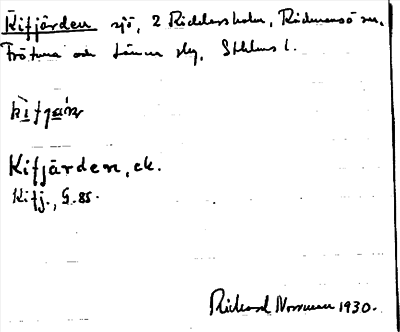 Kifjärden sjö, 2 Riddersholm, Rådmansö sn,
Frötuna och Länna skg, Sthlms l.
Kifjärden, ek.
Kifj., G. 85.
Richard Norrman 1930.